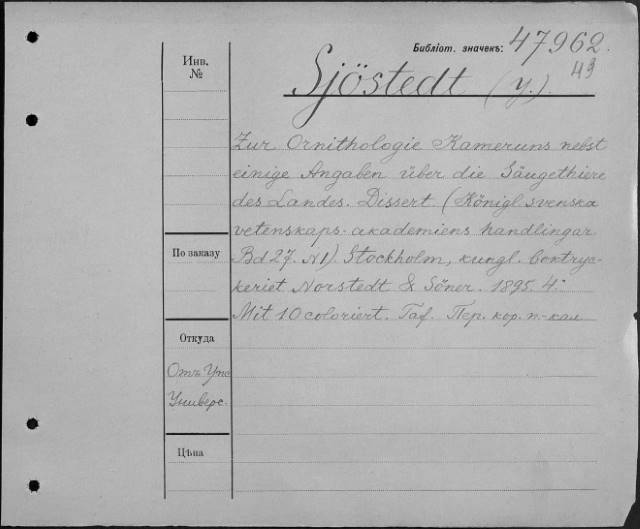 Библіот. значекъ: 47962.
43
Инв.
№
Sjöstedt (Y.).
Zur Ornithologie Kameruns nebst
einige Angaben über die Säugethiere
des Landes. Dissert (Königl. svenska
vetenskaps-akademiens handlingar.
Bd 27. N1) Stockholm, kungl. bontryc-
keriet Norstedt & Söner. 1895. 4:
Mit 10 coloriert. Taf. Пер. кор. п.-кал
По заказу
Откуда
Отъ Упс
Универс.
Цѣна